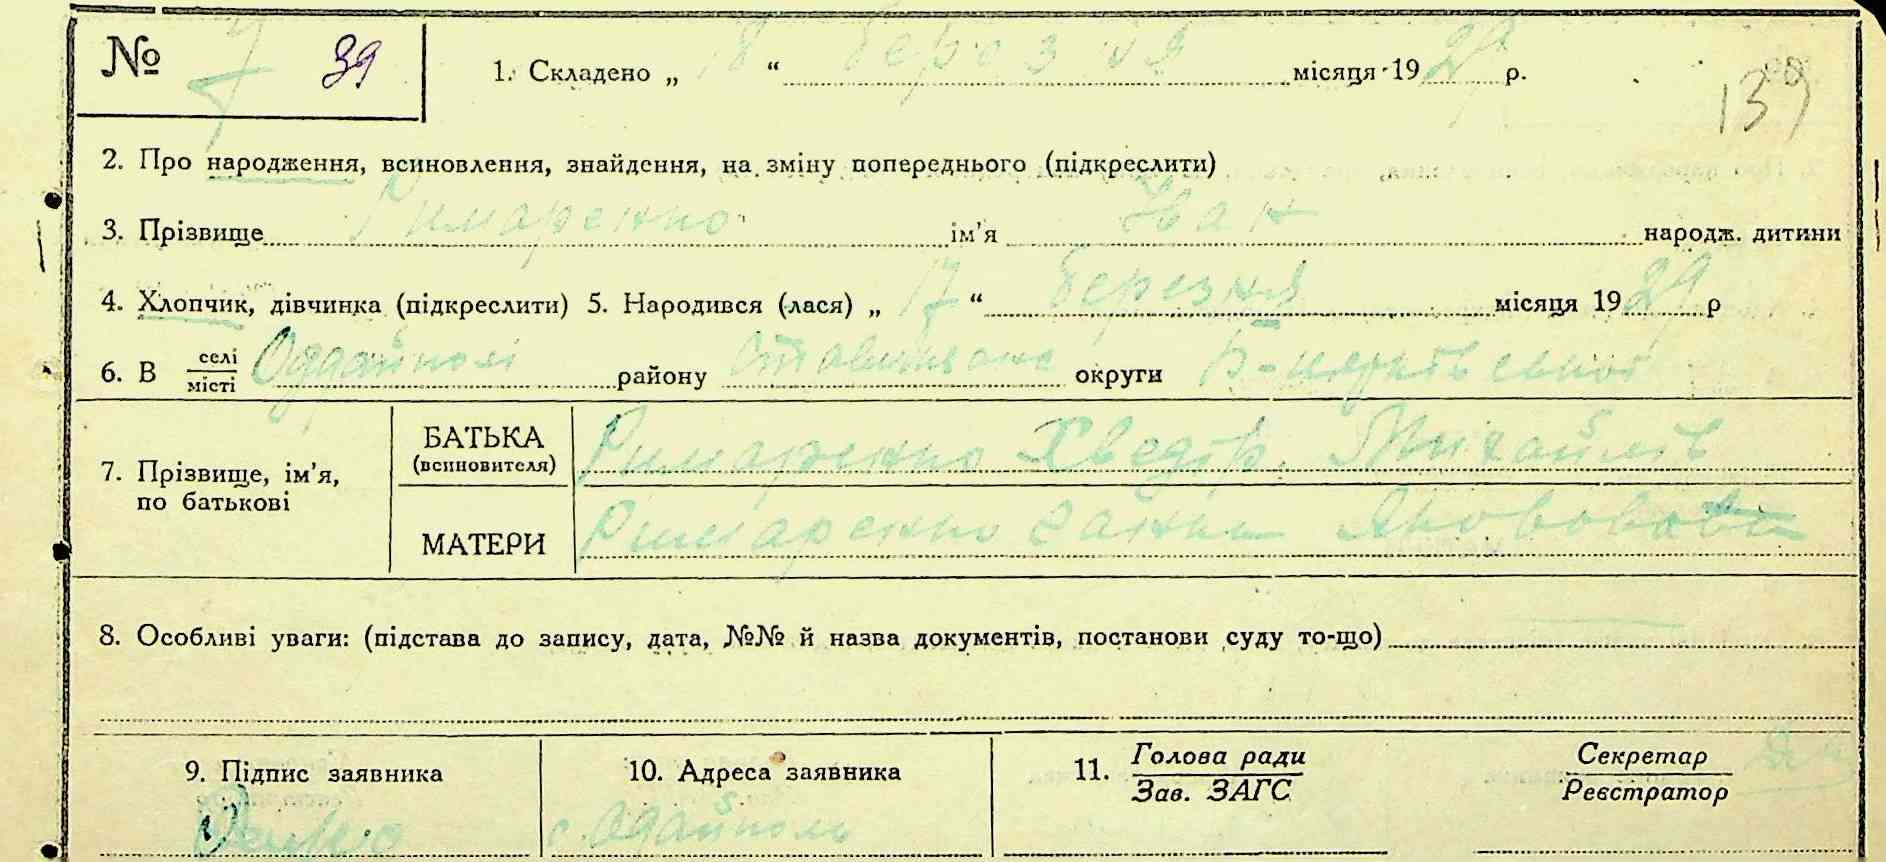 № 7 39 1. Складено „ 18 “ березня місяця 19 29 р. 139
2. Про народження, всиновлення, знайдення, на зміну попереднього (підкреслити)
3. Прізвище Римаренко ім’я Іван народж. дитини
4. Хлопчик, дівчинка (підкреслити) 5. Народився (лася) „ 17 “ березня місяця 19 29 р
6. В селі місті Одайполі району округи
7. Прізвище, ім’я, по батькові
БАТЬКА (всиновителя) Римаренко Хведір Михайлів
МАТЕРИ Римаренко Ганна
8. Особливі уваги: (підстава до запису, дата, №№ й назва документів, постанови суду то-що)
9. Підпис заявника
10. Адреса заявника
с. Одайполь
11. Голова ради Секретар
Зав. ЗАГС Реєстратор